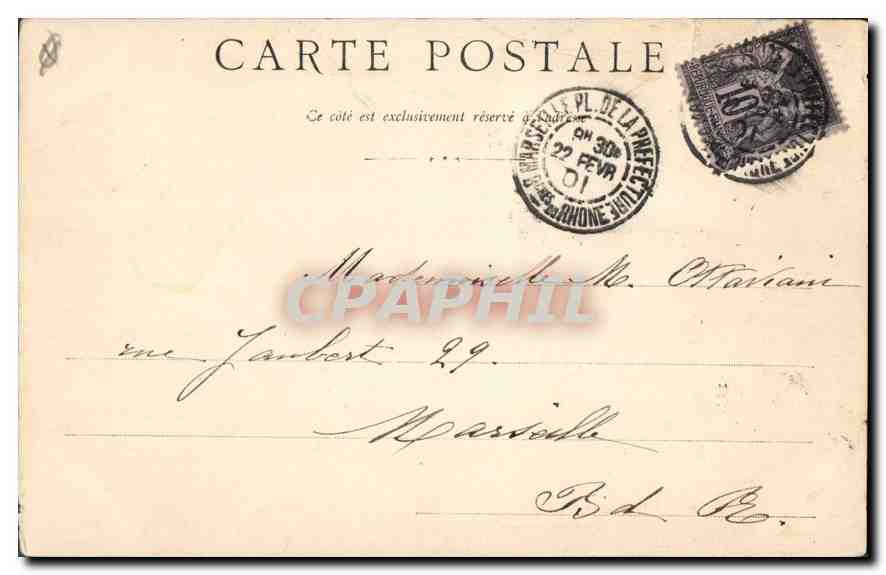 CARTE POSTALE
Ce côté est exclusivement réservé à l'adresse
MARSEILLE PL. DE LA PREFECTURE
30
22 FEVR
01
BCHES DU RHONE
10
Mademoiselle M. Ottaviani
CPAPHIL
rue Jaubert 29.
Marseille
B d R.